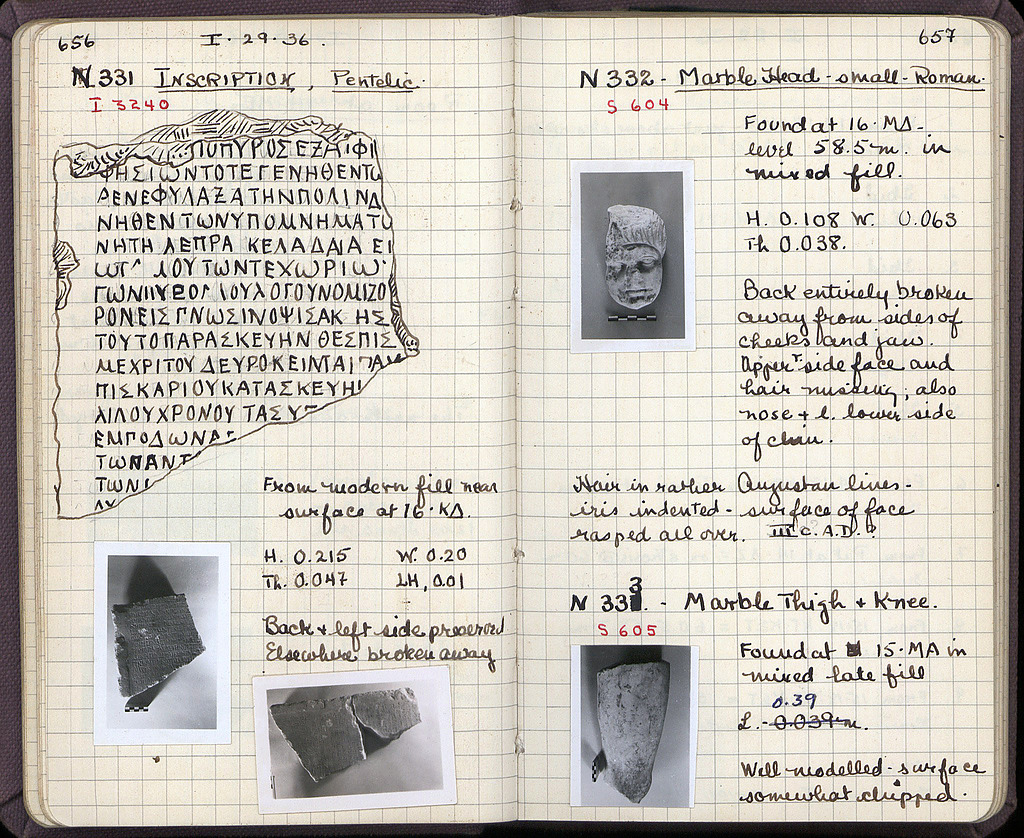 656
I · 29 · 36 .
N 331 INSCRIPTION, Pentelic.
I 3240
ΠΥΡΟΣ ΕΞΑΙΦΙ
ΦΗΣΙΩΝΤΟΤΕΓΕΝΗΘΕΝΤΩ
ΡΕΝΕΦΥΛΑΞΑΤΗΝΠΟΛΙΝΔ
ΝΗΘΕΝΤΩΝΥΠΟΜΝΗΜΑΤΩ
ΝΗΤΗ ΛΕΠΡΑ ΚΕΛΑΔΔΙΑ ΕΙ
ΛΟΥΤΩΝΤΕΧΩΡΙΩ
ΙΟΥΛΟΓΟΥΝΟΜΙΖΟ
ΡΟΝΕΙΣΓΝΩΣΙΝΟΨΙΣΑΚ ΗΣ
ΤΟΥΤΟΠΑΡΑΣΚΕΥΗΝΘΕΣΠΙΣ
ΜΕΧΡΙΤΟΥΔΕΥΡΟΚΕΙΝΤΑΙ
ΠΙΣΚΑΡΙΟΥΚΑΤΑΣΚΕΥΗΙ
ΛΙΛΟΥΧΡΟΝΟΥΤΑΣΥ
ΕΜΠΟΔΩΝΑΣ
ΤΩΠΑΝΤ
ΤΩΝΙ
From modern fill near
surface at 16 · ΚΔ.
H. 0.215 W. 0.20
Th. 0.047 LH, 0.01
Back + left side preserved
Elsewhere broken away
657
N 332 - Marble Head - small - Roman.
S 604
Found at 16 · ΜΔ -
level 58.5 m. in
mixed fill.
H. 0.108 W. 0.063
Th 0.038.
Back entirely broken
away from sides of
cheeks and jaw.
Upper r. side face and
hair missing; also
nose + l. lower side
of chin.
Hair in rather Augustan lines -
iris indented - surface of face
rasped all over. III c. A.D.?
N 333. - Marble Thigh + Knee.
S 605
Found at 15 · ΜΑ in
mixed late fill
0.39
L. - 0.039 m.
Well modelled - surface
somewhat chipped.